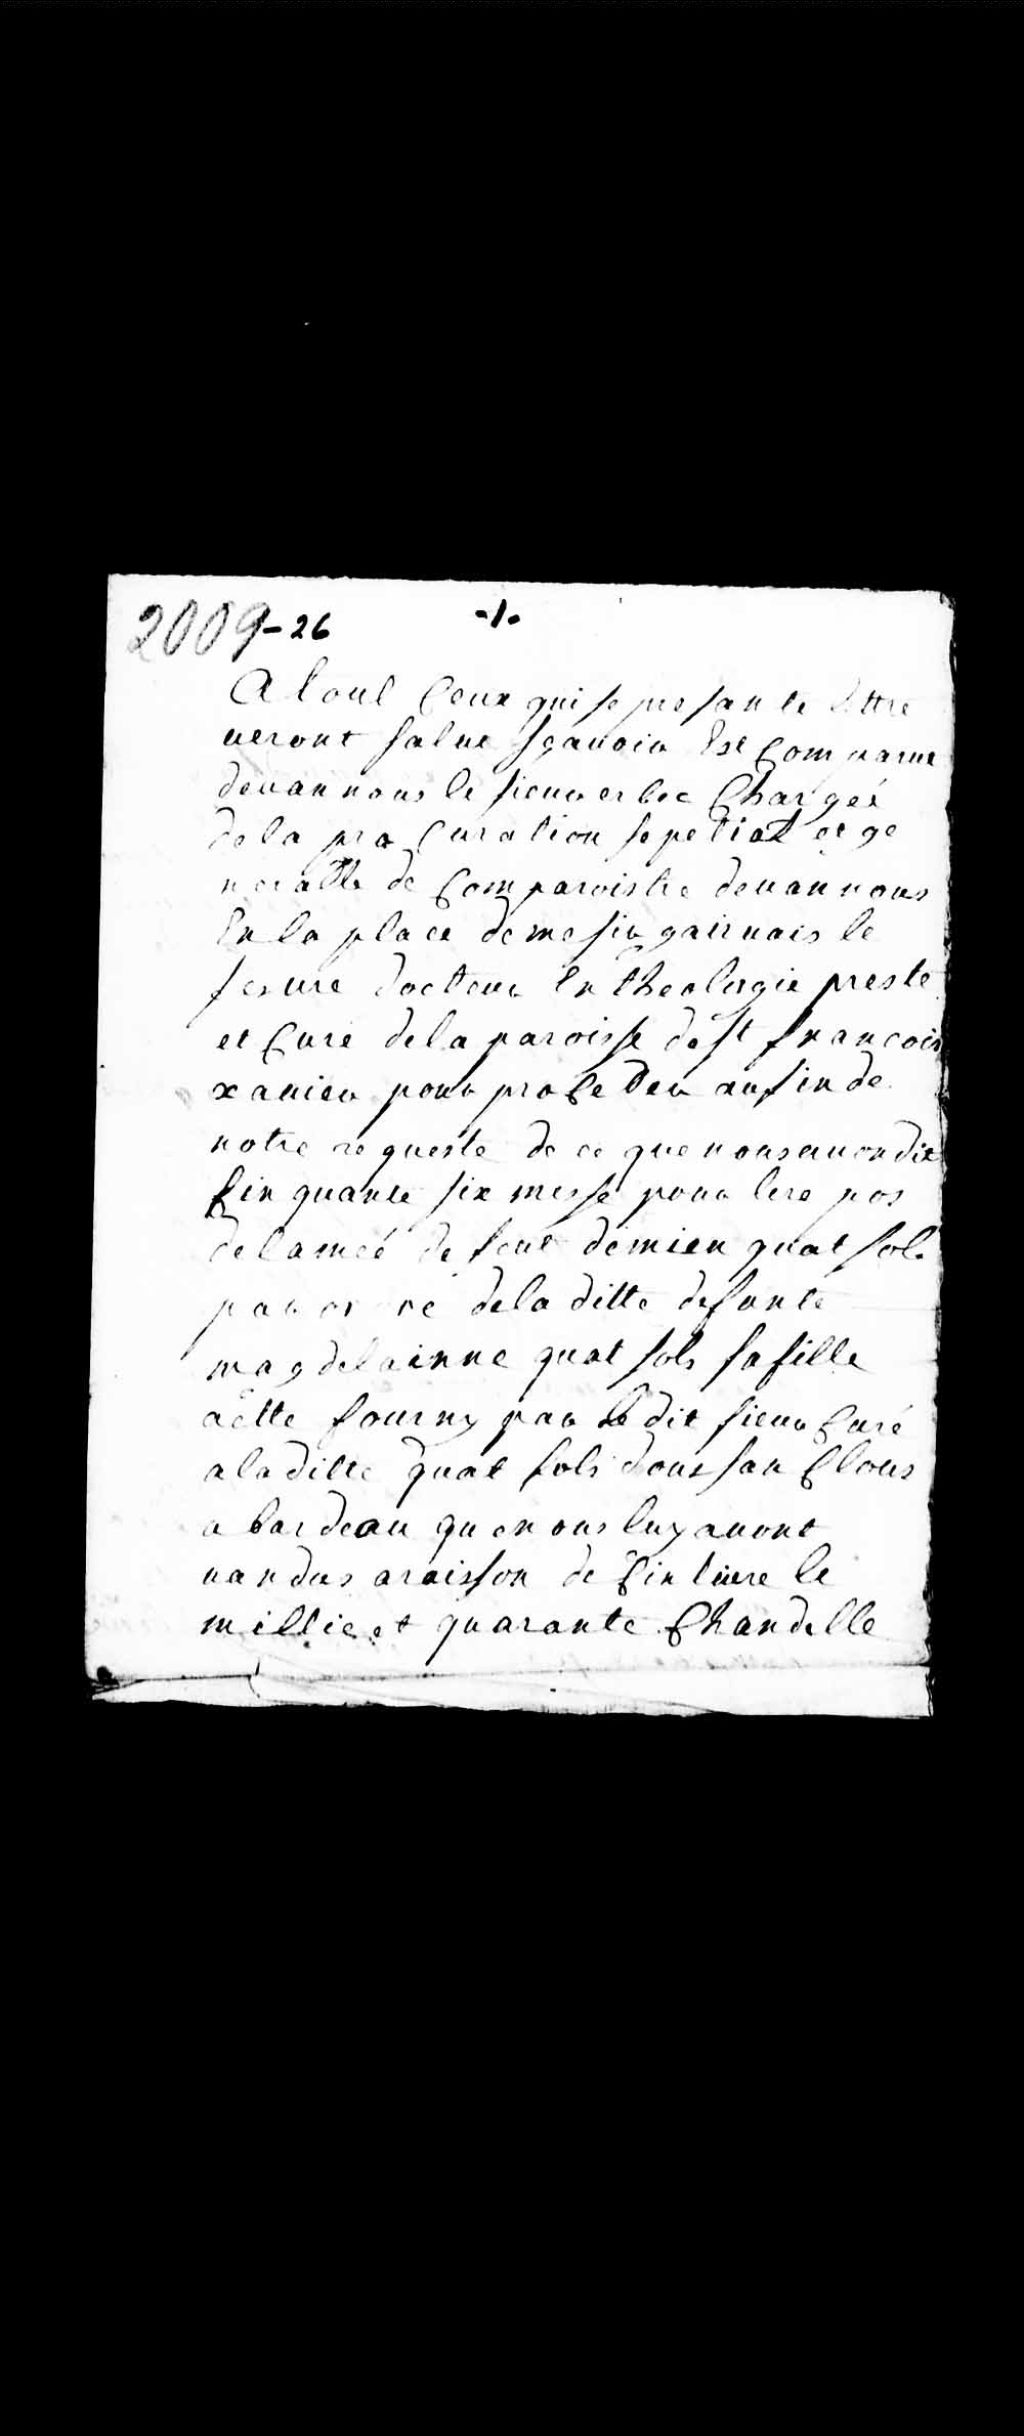 2009-26
-1-
A tout ceux qui se presante lettre
veront salue sçavoir Est Comparue
devan nous le sieur erbec Chargéé
de la pro Curation sepetial et ge
neralle de Comparoistre devan nous
En la place de mesir gairvais le
fesvre docteur En theologie preste
et Curé de la paroisse de st francois
xavier pour proceder aufin de
notre requeste de ce que nous avon dit
Cinquante six messe pour lere pos
de lameé de feut demien quat sols
par ordre de la ditte defunte
magdelainne quat sols sa fille
aétte fourny par le dit sieur Curé
a la ditte quat sols dous san Clous
a bardeau que nous luy avont
vandus araisson de Cin livre le
millie et quarante Chandelle